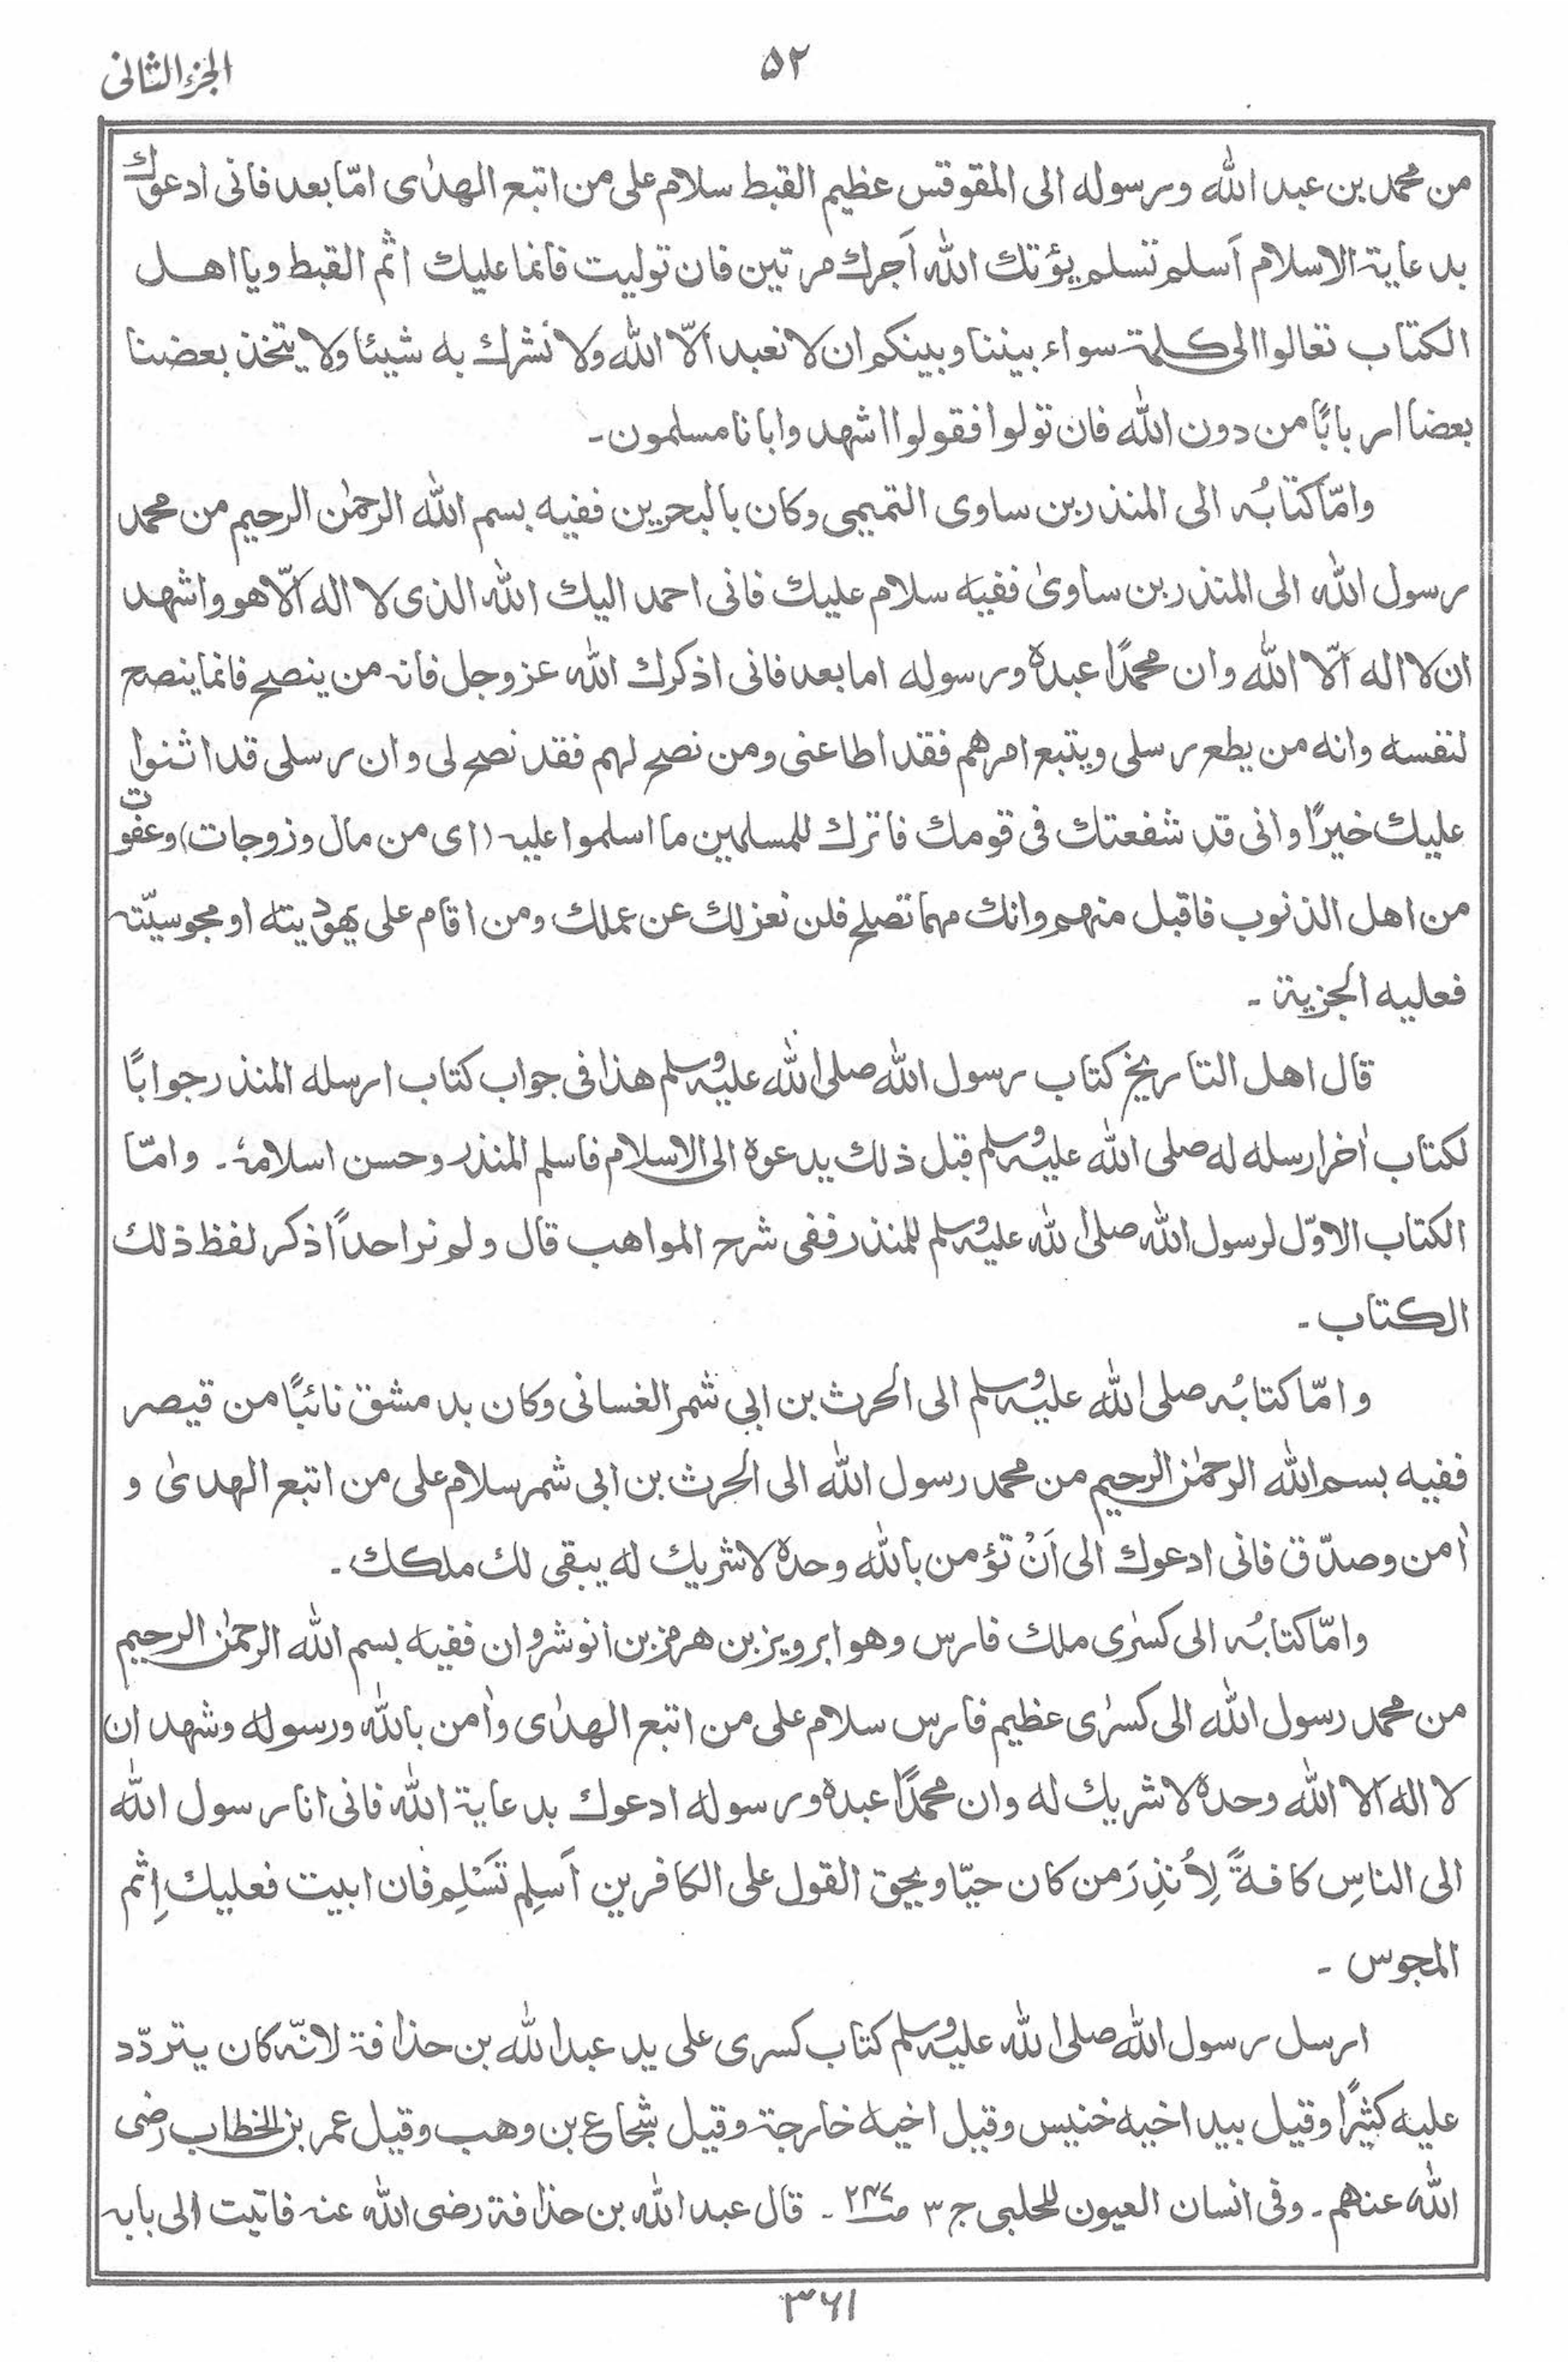 الجزء الثانی
۵۲
من محمد بن عبد الله ورسوله الى المقوقس عظيم القبط سلام على من اتبع الهدٰى امّا بعد فانى ادعوك
بدعاية الاسلام اَسلم تسلم يؤتك الله اَجرك مرتين فان توليت فانما عليك اثم القبط ويا اهل
الكتاب تعالوا الى كلمة سواء بيننا وبينكم ان لا نعبد الّا الله ولا نشرك به شيئا ولا يتخذ بعضنا
بعضا اربابًا من دون الله فان تولوا فقولوا اشهدوا بانا مسلمون۔
وامّا كتابُه الى المنذر بن ساوى التميمى وكان بالبحرين ففيه بسم الله الرحمٰن الرحيم من محمد
رسول الله الى المنذر بن ساوىٰ ففيه سلام عليك فانى احمد اليك الله الذى لا اله الّا هو واشهد
ان لا اله الّا الله وان محمدًا عبده ورسوله اما بعد فانى اذكرك الله عز وجل فانه من ينصح فانما ينصح
لنفسه وانه من يطع رسلى ويتبع امرهم فقد اطاعنى ومن نصح لهم فقد نصح لى وان رسلى قد اثنوا
عليك خيرًا وانى قد شفعتك فى قومك فاترك للمسلمين ما اسلموا عليه (اى من مال وزوجات) وعفوت
من اهل الذنوب فاقبل منهم وانك مهما تصلح فلن نعزلك عن عملك ومن اقام على يهوديته او مجوسيّته
فعليه الجزية۔
قال اهل التاريخ كتاب رسول الله صلى الله عليه وسلم هذا فى جواب كتاب ارسله المنذر جوابًا
لكتاب اٰخر ارسله له صلى الله عليه وسلم قبل ذلك يدعوه الى الاسلام فاسلم المنذر وحسن اسلامهٔ۔ وامّا
الكتاب الاوّل لرسول الله صلى الله عليه وسلم للمنذر ففى شرح المواهب قال ولم نر احداً ذكر لفظ ذلك
الكتاب۔
وامّا كتابُه صلى الله عليه وسلم الى الحرث بن ابي شمر الغسانى وكان بدمشق نائبًا من قيصر
ففيه بسم الله الرحمٰن الرحيم من محمد رسول الله الى الحرث بن ابى شمر سلام على من اتبع الهدىٰ و
اٰمن وصدّق فانى ادعوك الى اَنْ تؤمن بالله وحده لا شريك له يبقى لك ملكك۔
وامّا كتابُه الى كسرٰى ملك فارس وهو ابرويز بن هرمز بن انوشروان ففيه بسم الله الرحمٰن الرحيم
من محمد رسول الله الى كسرٰى عظيم فارس سلام على من اتبع الهدٰى واٰمن بالله ورسوله وشهد ان
لا اله الا الله وحده لا شريك له وان محمدًا عبده ورسوله ادعوك بدعاية الله فانى انا رسول الله
الى الناسِ كافةً لِاُنذِرَ من كان حيّا ويحق القول على الكافرين اَسلِم تَسْلِم فان ابيت فعليك اِثم
المجوس۔
ارسل رسول الله صلى الله عليه وسلم كتاب كسرى على يد عبد الله بن حذافة لانّه كان يتردّد
عليه كثيرًا وقيل بيد اخيه خنيس وقيل اخيه خارجة وقيل شجاع بن وهب وقيل عمر بن الخطاب رضى
الله عنهم۔ وفى انسان العيون للحلبى ج ۳ ۔ قال عبد الله بن حذافة رضى الله عنه فاتيت الى بابه
۳۶۱